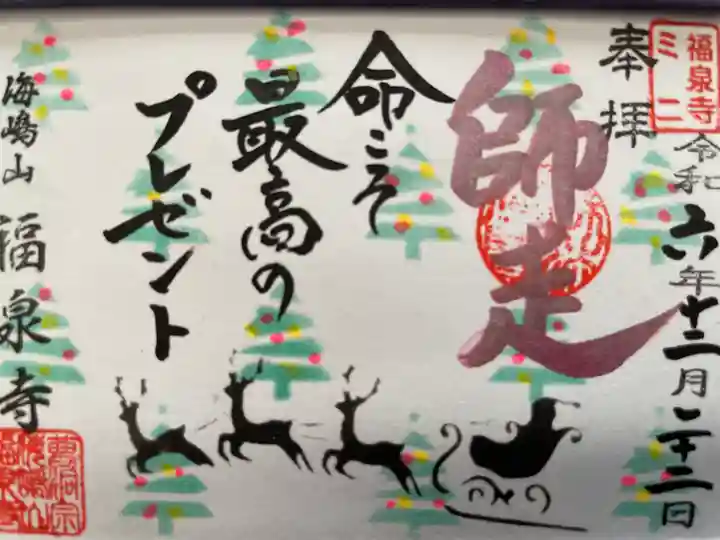 福泉寺
ミニ
奉拝
令和六年十二月二十二日
師走
命こそ
最高の
プレゼント
海嶋山
福泉寺